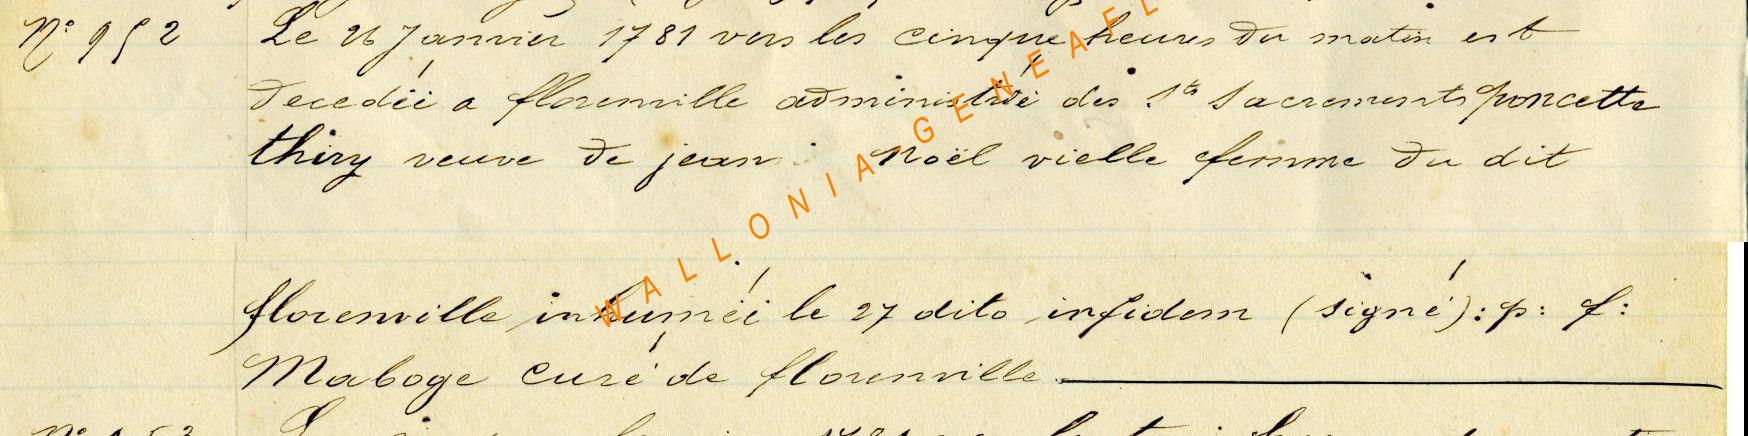 N° 952
Le 26 Janvier 1781 vers les cinque heures du matin est
decedéé a florenville administréé des Sts Sacrements poncette
thiry veuve de jean Noël vielle femme du dit
florenville inhuméé le 27 dito infidem (signé): p: f:
Maboge curé de florenville
WALLONIA GENEA